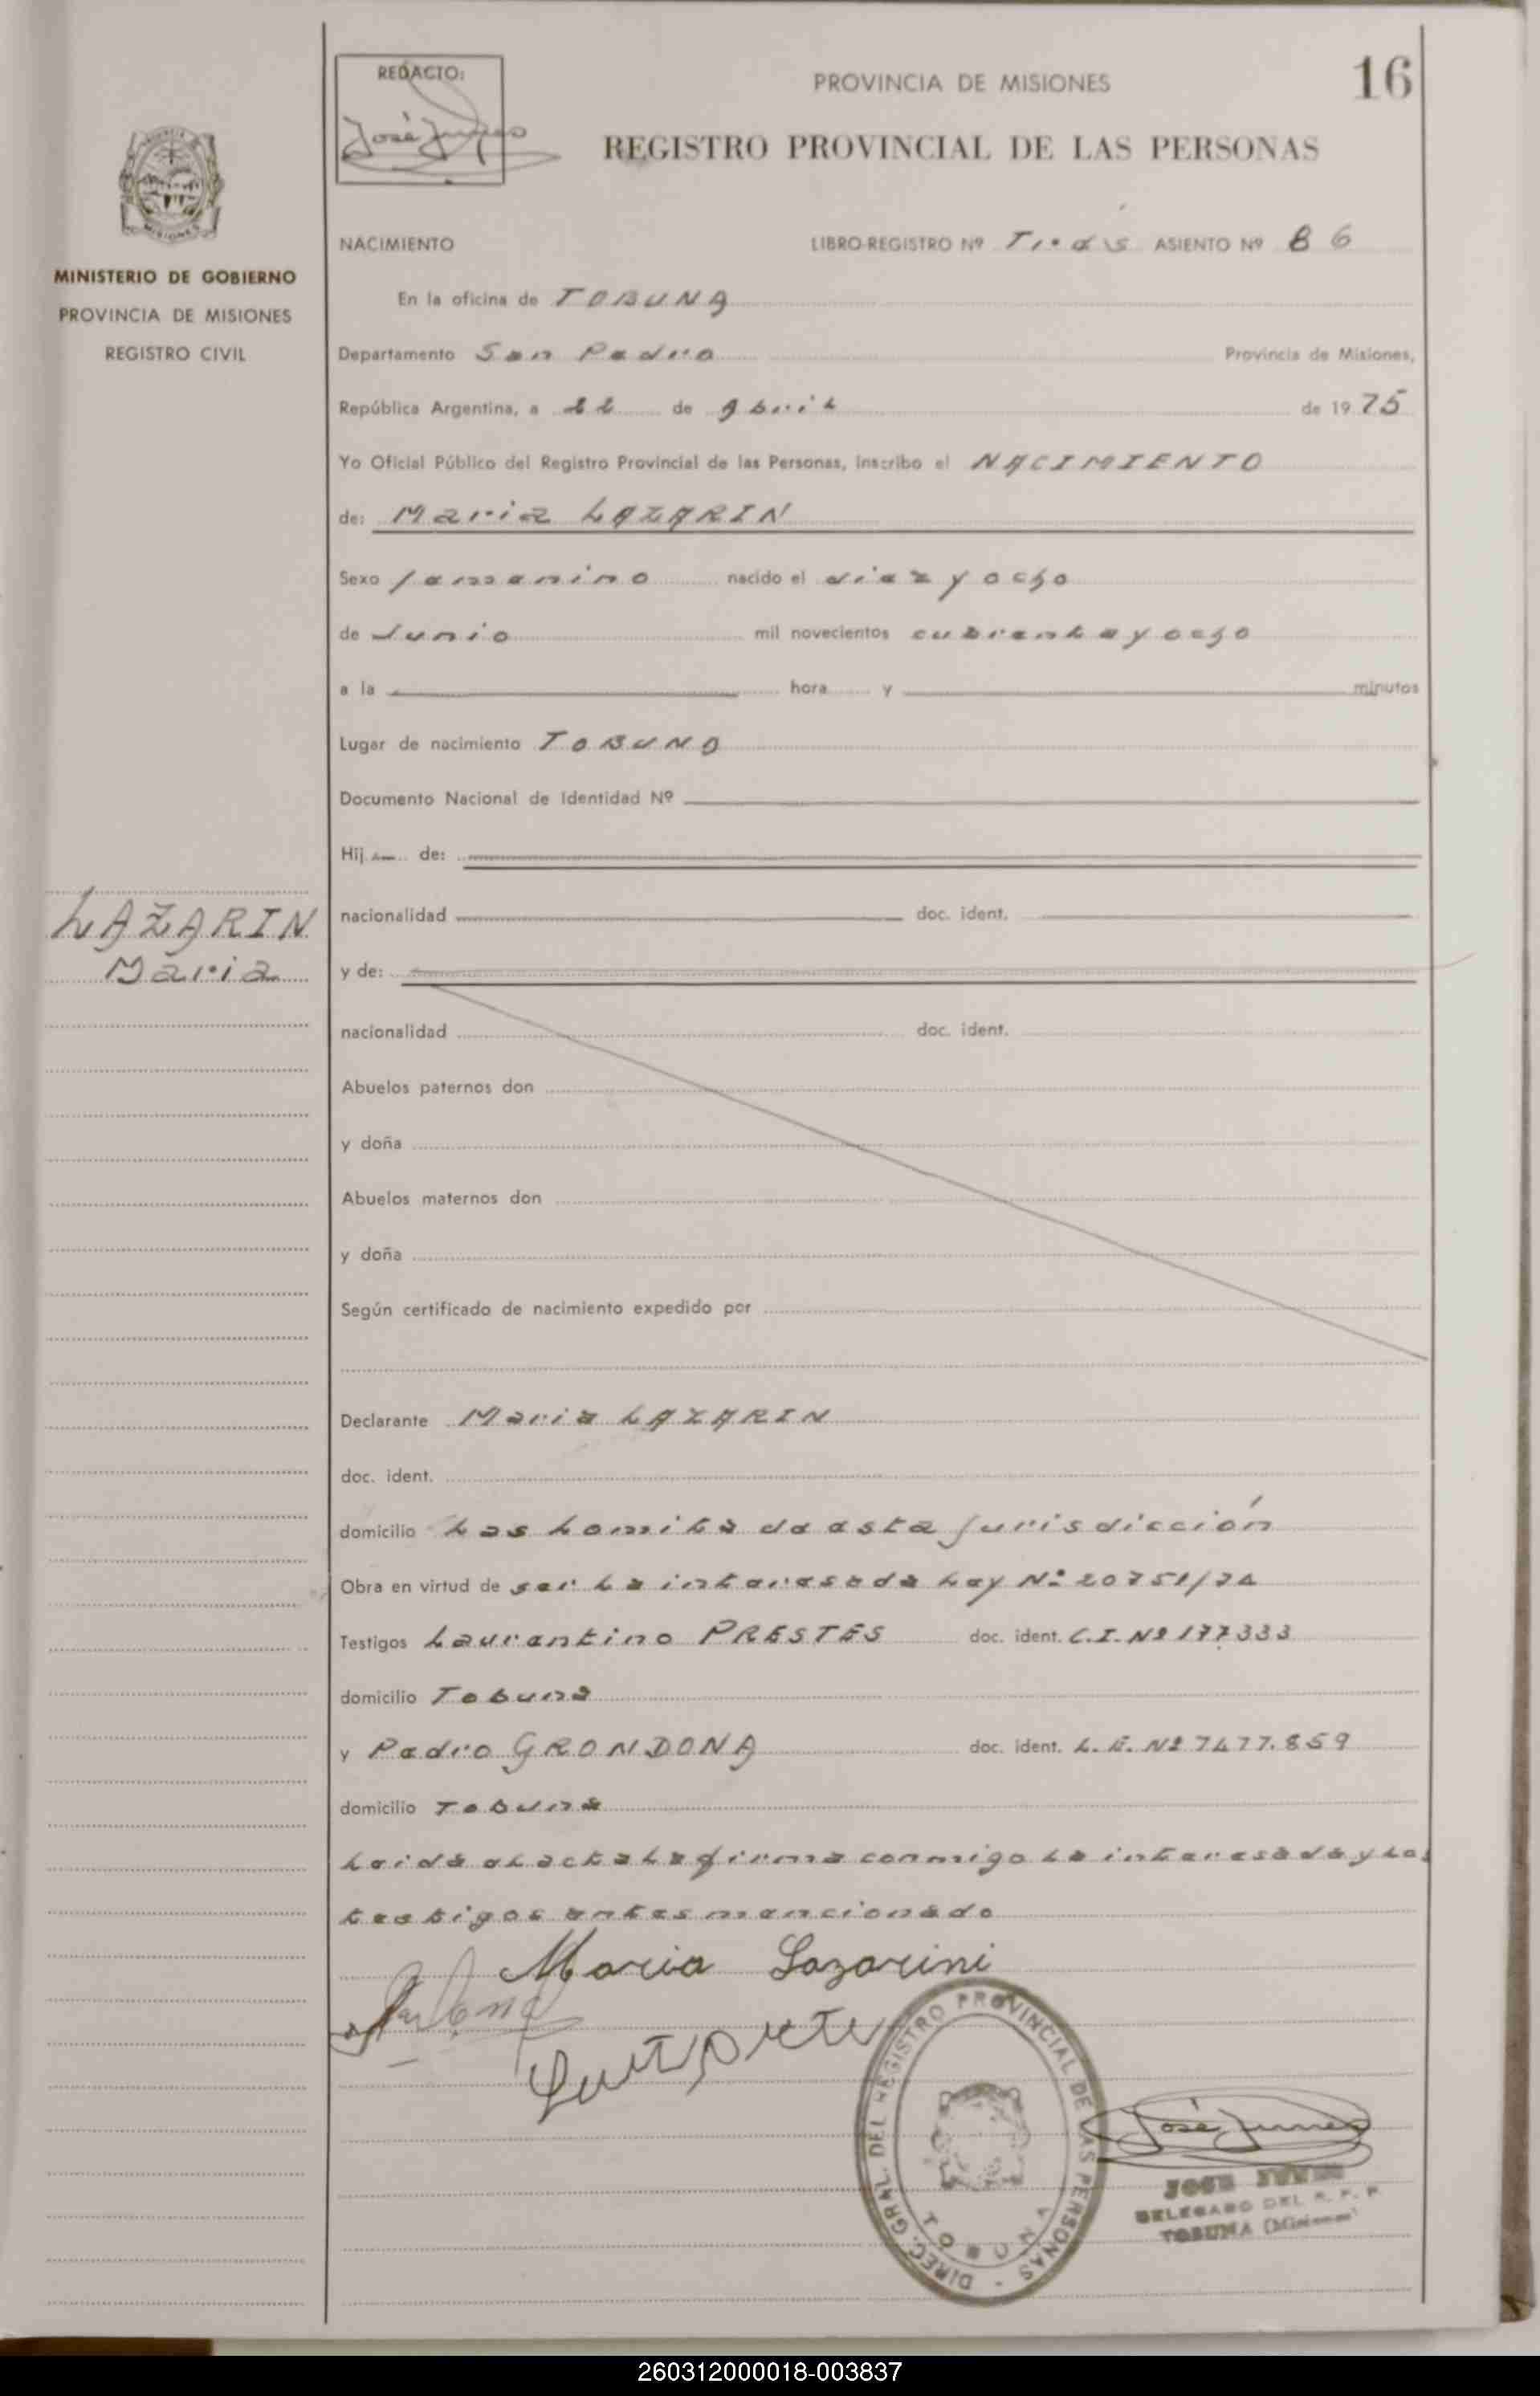 REDACTO:
PROVINCIA DE MISIONES
16
REGISTRO PROVINCIAL DE LAS PERSONAS
MISIONES
MINISTERIO DE GOBIERNO
PROVINCIA DE MISIONES
REGISTRO CIVIL
NACIMIENTO LIBRO-REGISTRO Nº ASIENTO Nº 86
En la oficina de TOBUNA
Departamento San Pedro Provincia de Misiones,
República Argentina, a 22 de Abril de 1975
Yo Oficial Público del Registro Provincial de las Personas, inscribo el NACIMIENTO
de: Maria LAZARIN
Sexo femenino nacido el diez y ocho
de Junio mil novecientos cuarenta y ocho
a la hora y minutos
Lugar de nacimiento TOBUNA
Documento Nacional de Identidad Nº
Hij de:
LAZARIN
Maria
nacionalidad doc. ident.
y de:
nacionalidad doc. ident.
Abuelos paternos don
y doña
Abuelos maternos don
y doña
Según certificado de nacimiento expedido por
Declarante Maria LAZARIN
doc. ident.
domicilio Las Lomita de esta jurisdicción
Obra en virtud de ser la interesada Ley Nº 20751/74
Testigos Laurentino PRESTES doc. ident. C.I. Nº 177333
domicilio Tobuna
y Pedro GRONDONA doc. ident. L.E. Nº 7477.859
domicilio Tobuna
Leida el acta la firma conmigo la interesada y los
testigos antes mencionado
Maria Lazarini
DIREC. GRAL. DEL REGISTRO PROVINCIAL DE LAS PERSONAS -
TOBUNA
JOSE
DELEGADO DEL R. P. P.
TOBUNA (Misiones)
260312000018-003837